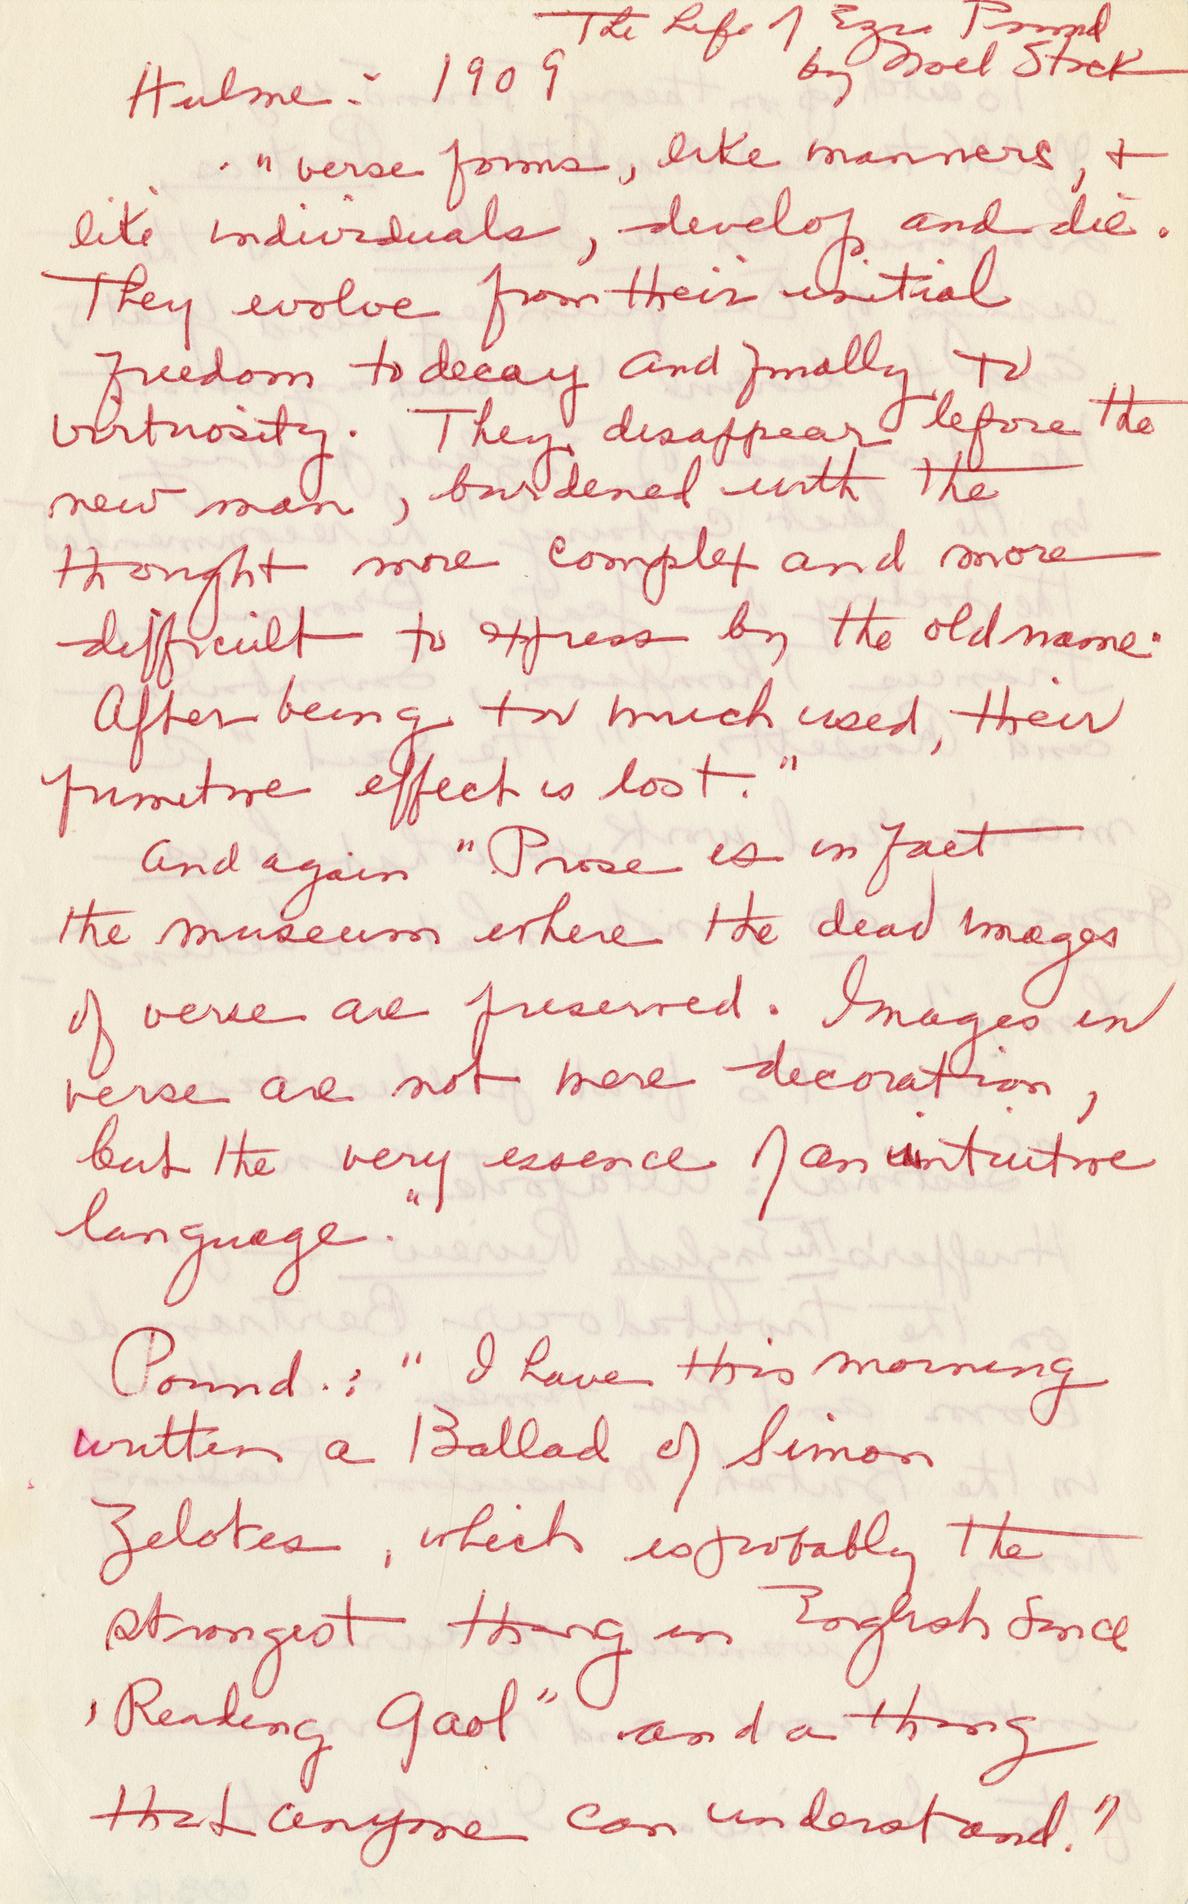 The Life of Ezra Pound
by Noel Stock
Hulme: 1909
"verse forms, like manners, +
like individuals, develop and die.
They evolve from their initial
freedom to decay and finally to
virtuosity. They disappear before the
new man, burdened with the
thought more complex and more
difficult to express by the old name.
After being too much used, their
primitive effect is lost."
And again "Prose is in fact
the museum where the dead images
of verse are preserved. Images in
verse are not mere decoration,
but the very essence of an intuitive
language."
Pound: "I have this morning
written a Ballad of Simon
Zelotes, which is probably the
strongest thing in English since
'Reading Gaol" and a thing
that anyone can understand."